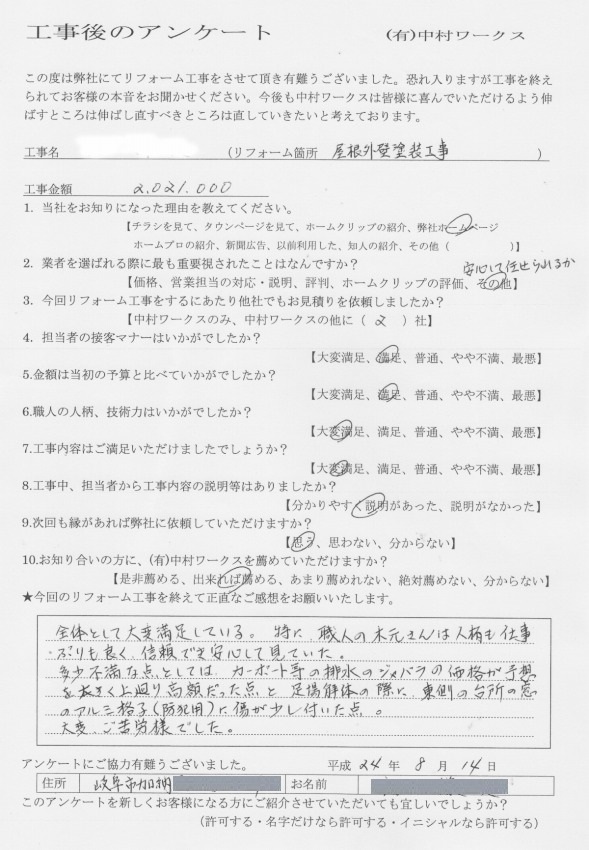 工事後のアンケート (有)中村ワークス
この度は弊社にてリフォーム工事をさせて頂き有難うございました。恐れ入りますが工事を終え
られてお客様の本音をお聞かせください。今後も中村ワークスは皆様に喜んでいただけるよう伸
ばすところは伸ばし直すべきところは直していきたいと考えております。
工事名 (リフォーム箇所 屋根外壁塗装工事 )
工事金額 2,021,000
1. 当社をお知りになった理由を教えてください。
【チラシを見て、タウンページを見て、ホームクリップの紹介、弊社ホームページ
ホームプロの紹介、新聞広告、以前利用した、知人の紹介、その他( )】
2. 業者を選ばれる際に最も重要視されたことはなんですか? 安心して任せられるか
【価格、営業担当の対応・説明、評判、ホームクリップの評価、その他】
3. 今回リフォーム工事をするにあたり他社でもお見積りを依頼しましたか?
【中村ワークスのみ、中村ワークスの他に( 2 )社】
4. 担当者の接客マナーはいかがでしたか?
【大変満足、満足、普通、やや不満、最悪】
5.金額は当初の予算と比べていかがでしたか?
【大変満足、満足、普通、やや不満、最悪】
6.職人の人柄、技術力はいかがでしたか?
【大変満足、満足、普通、やや不満、最悪】
7.工事内容はご満足いただけましたでしょうか?
【大変満足、満足、普通、やや不満、最悪】
8.工事中、担当者から工事内容の説明等はありましたか?
【分かりやすく説明があった、説明がなかった】
9.次回も縁があれば弊社に依頼していただけますか?
【思う、思わない、分からない】
10.お知り合いの方に、(有)中村ワークスを薦めていただけますか?
【是非薦める、出来れば薦める、あまり薦めれない、絶対薦めない、分からない】
★今回のリフォーム工事を終えて正直なご感想をお願いいたします。
全体として大変満足している。特に、職人の木元さんは人柄も仕事
ぶりも良く、信頼でき安心して見ていた。
多少不満な点としては、カーポート等の排水のジャバラの価格が予想
を大きく上廻り高額だった点と、足場解体の際に、東側の台所の窓
のアルミ格子(防犯用)に傷が少し付いた点。
大変、ご苦労様でした。
アンケートにご協力有難うございました。 平成 24 年 8 月 14 日
住所 岐阜市加納 お名前
このアンケートを新しくお客様になる方にご紹介させていただいても宜しいでしょうか?
(許可する・名字だけなら許可する・イニシャルなら許可する)